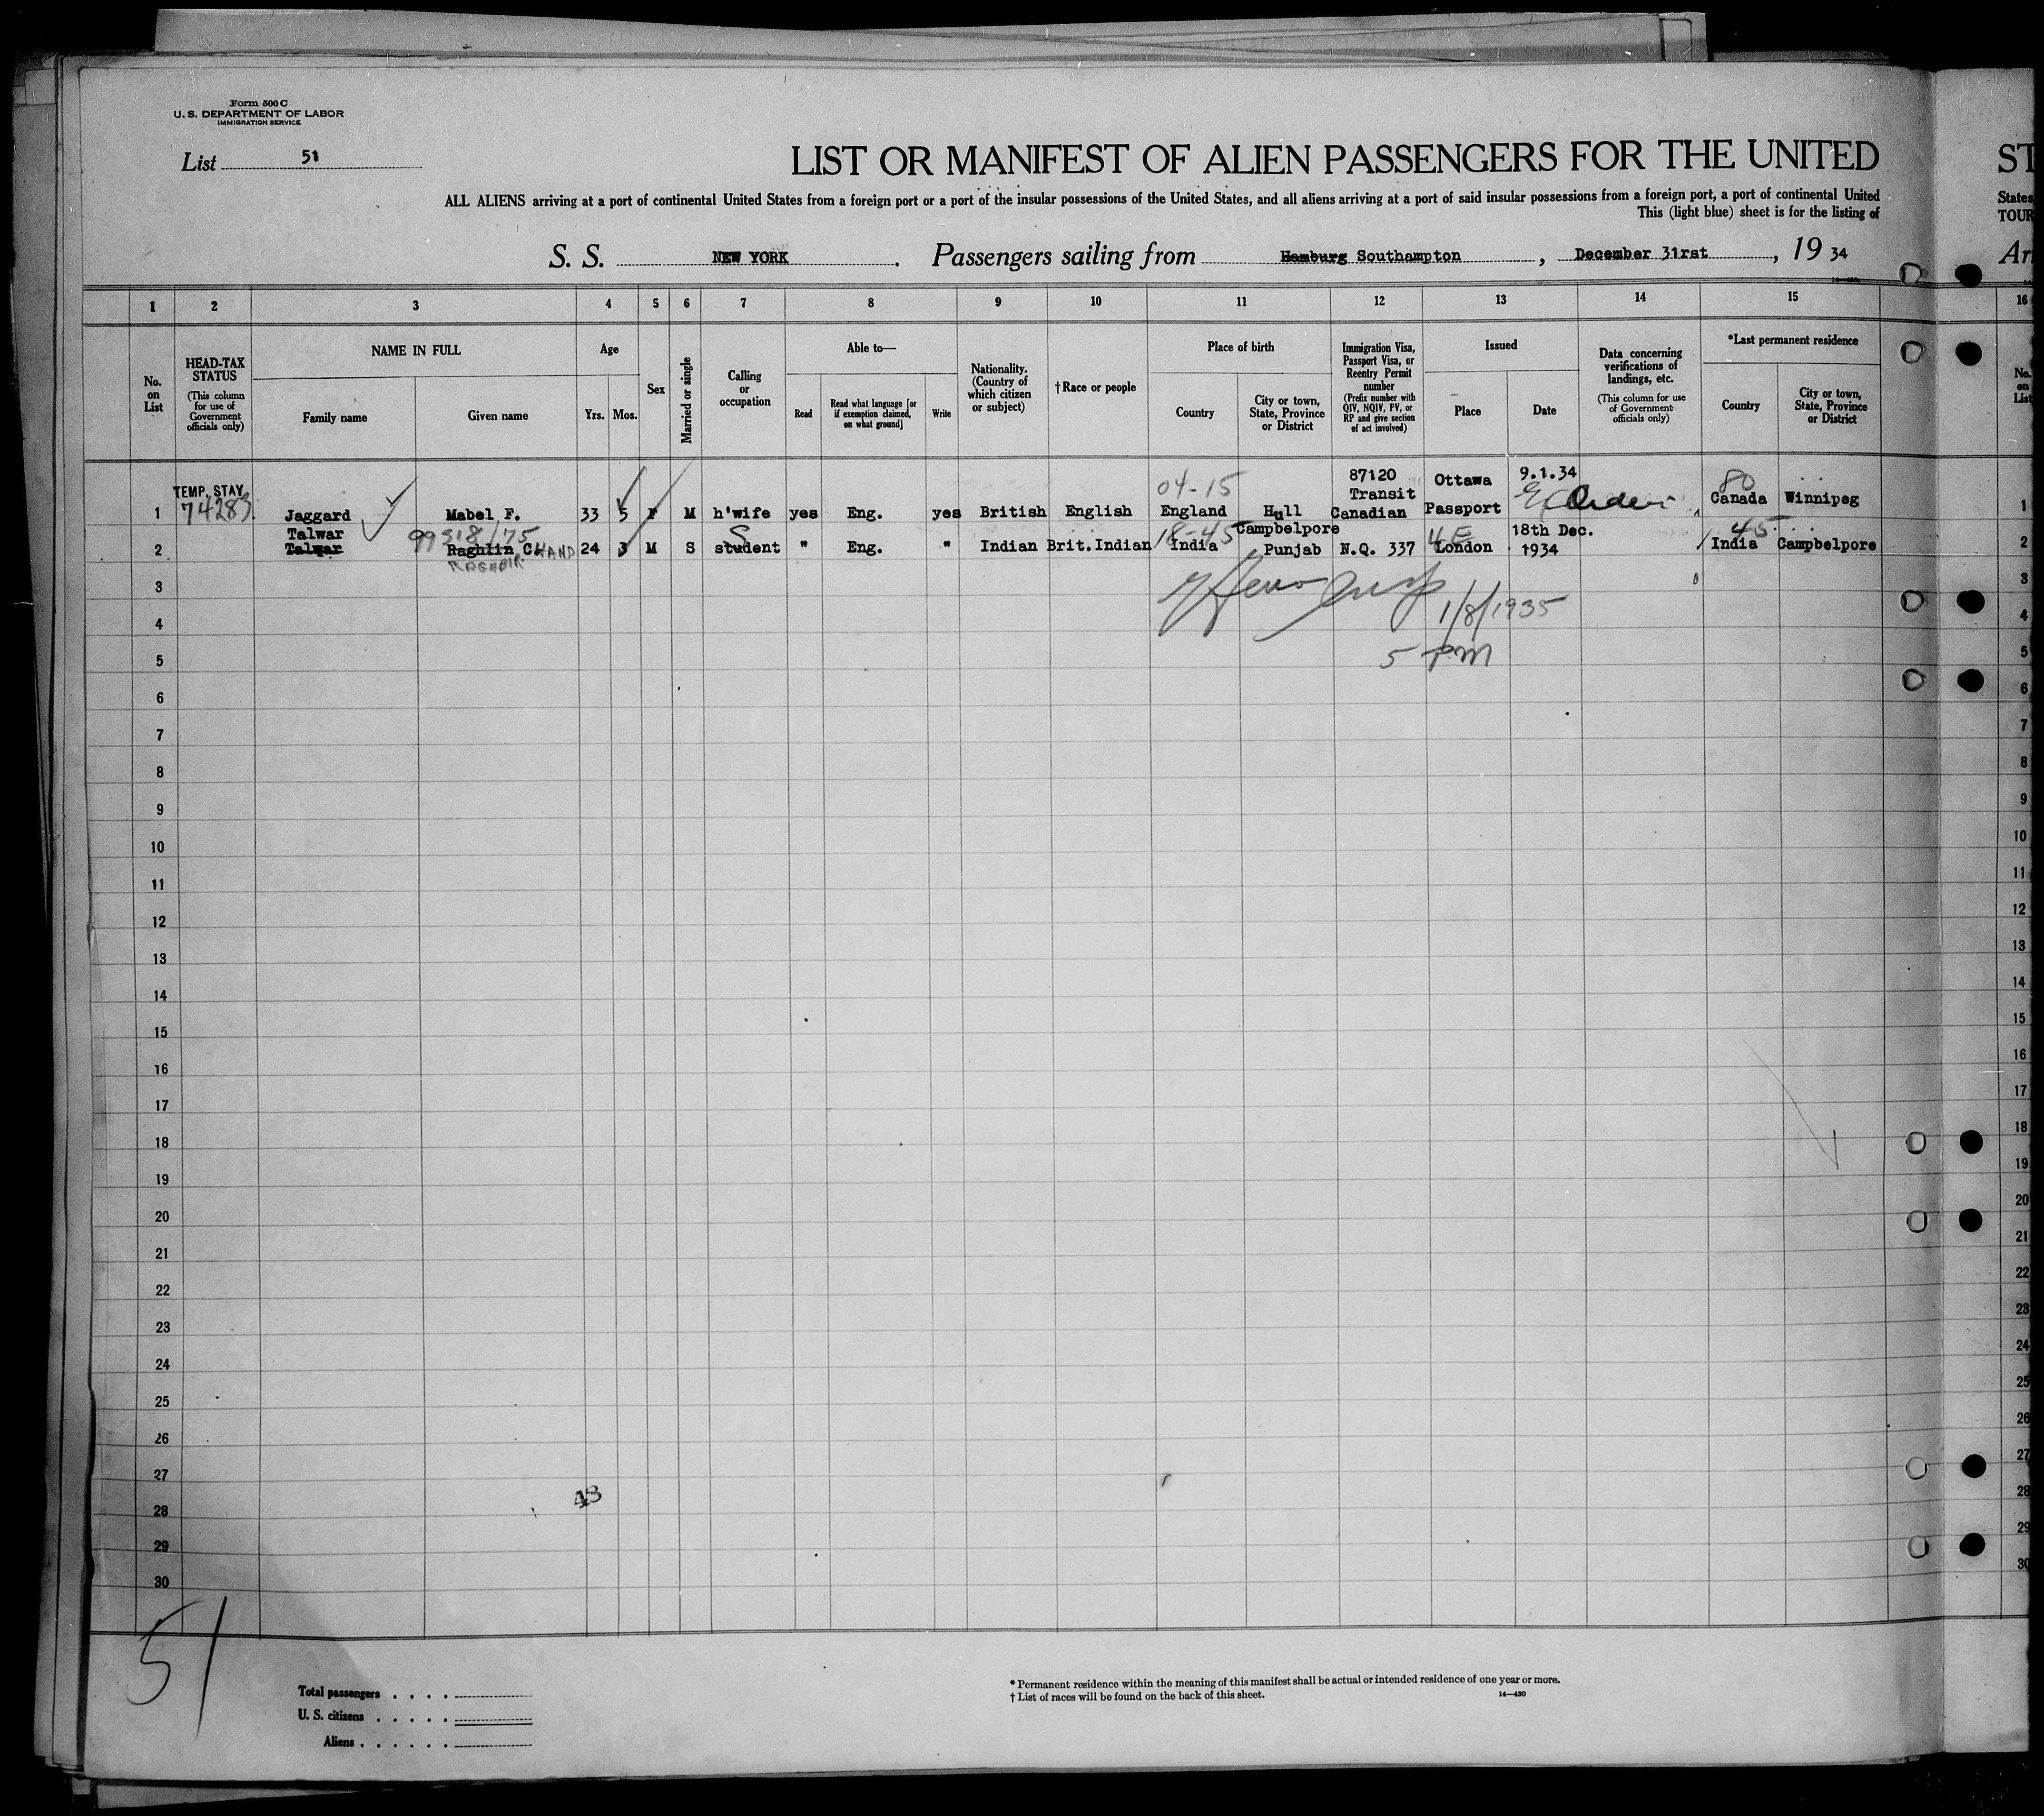 Form 500 C
U. S. DEPARTMENT OF LABOR
IMMIGRATION SERVICE
List 51
LIST OR MANIFEST OF ALIEN PASSENGERS FOR THE UNITED
ST
ALL ALIENS arriving at a port of continental United States from a foreign port or a port of the insular possessions of the United States, and all aliens arriving at a port of said insular possessions from a foreign port, a port of continental United
States
This (light blue) sheet is for the listing of
TOUR
S. S. NEW YORK. Passengers sailing from Hamburg Southampton, December 31rst, 19 34
Ar
1 2 3 4 5 6 7 8 9 10 11 12 13 14 15 16
No. on List
HEAD-TAX STATUS
(This column for use of Government officials only)
NAME IN FULL
Family name
Given name
Age
Yrs. Mos.
Sex
Married or single
Calling or occupation
Able to—
Read
Read what language [or if exemption claimed, on what ground]
Write
Nationality. (Country of which citizen or subject)
† Race or people
Place of birth
Country
City or town, State, Province or District
Immigration Visa, Passport Visa, or Reentry Permit number
(Prefix number with QIV, NQIV, PV, or RP and give section of act involved)
Issued
Place
Date
Data concerning verifications of landings, etc.
(This column for use of Government officials only)
*Last permanent residence
Country
City or town, State, Province or District
No. on List
TEMP. STAY 04-15 87120 Ottawa 9.1.34 80
74283 Transit
1 Jaggard Mabel F. 33 5 F M h'wife yes Eng. yes British English England Hull Canadian Passport Canada Winnipeg 1
Talwar 99518/75 S 18-45 Campbelpore 4E 18th Dec. 45
2 Talwar Raghlin C. HAND 24 3 M S student " Eng. " Indian Brit.Indian India Punjab N.Q. 337 London 1934 India Campbelpore 2
RAGHBIR
3 3
1/8/1935
4 4
5 PM
5 5
6 6
7 7
8 8
9 9
10 10
11 11
12 12
13 13
14 14
15 15
16 16
17 17
18 18
19 19
20 20
21 21
22 22
23 23
24 24
25 25
26 26
27 27
48
28 28
29 29
30 30
51
Total passengers . . . .
U. S. citizens . . . . .
Aliens . . . . . .
* Permanent residence within the meaning of this manifest shall be actual or intended residence of one year or more.
† List of races will be found on the back of this sheet.
14—430